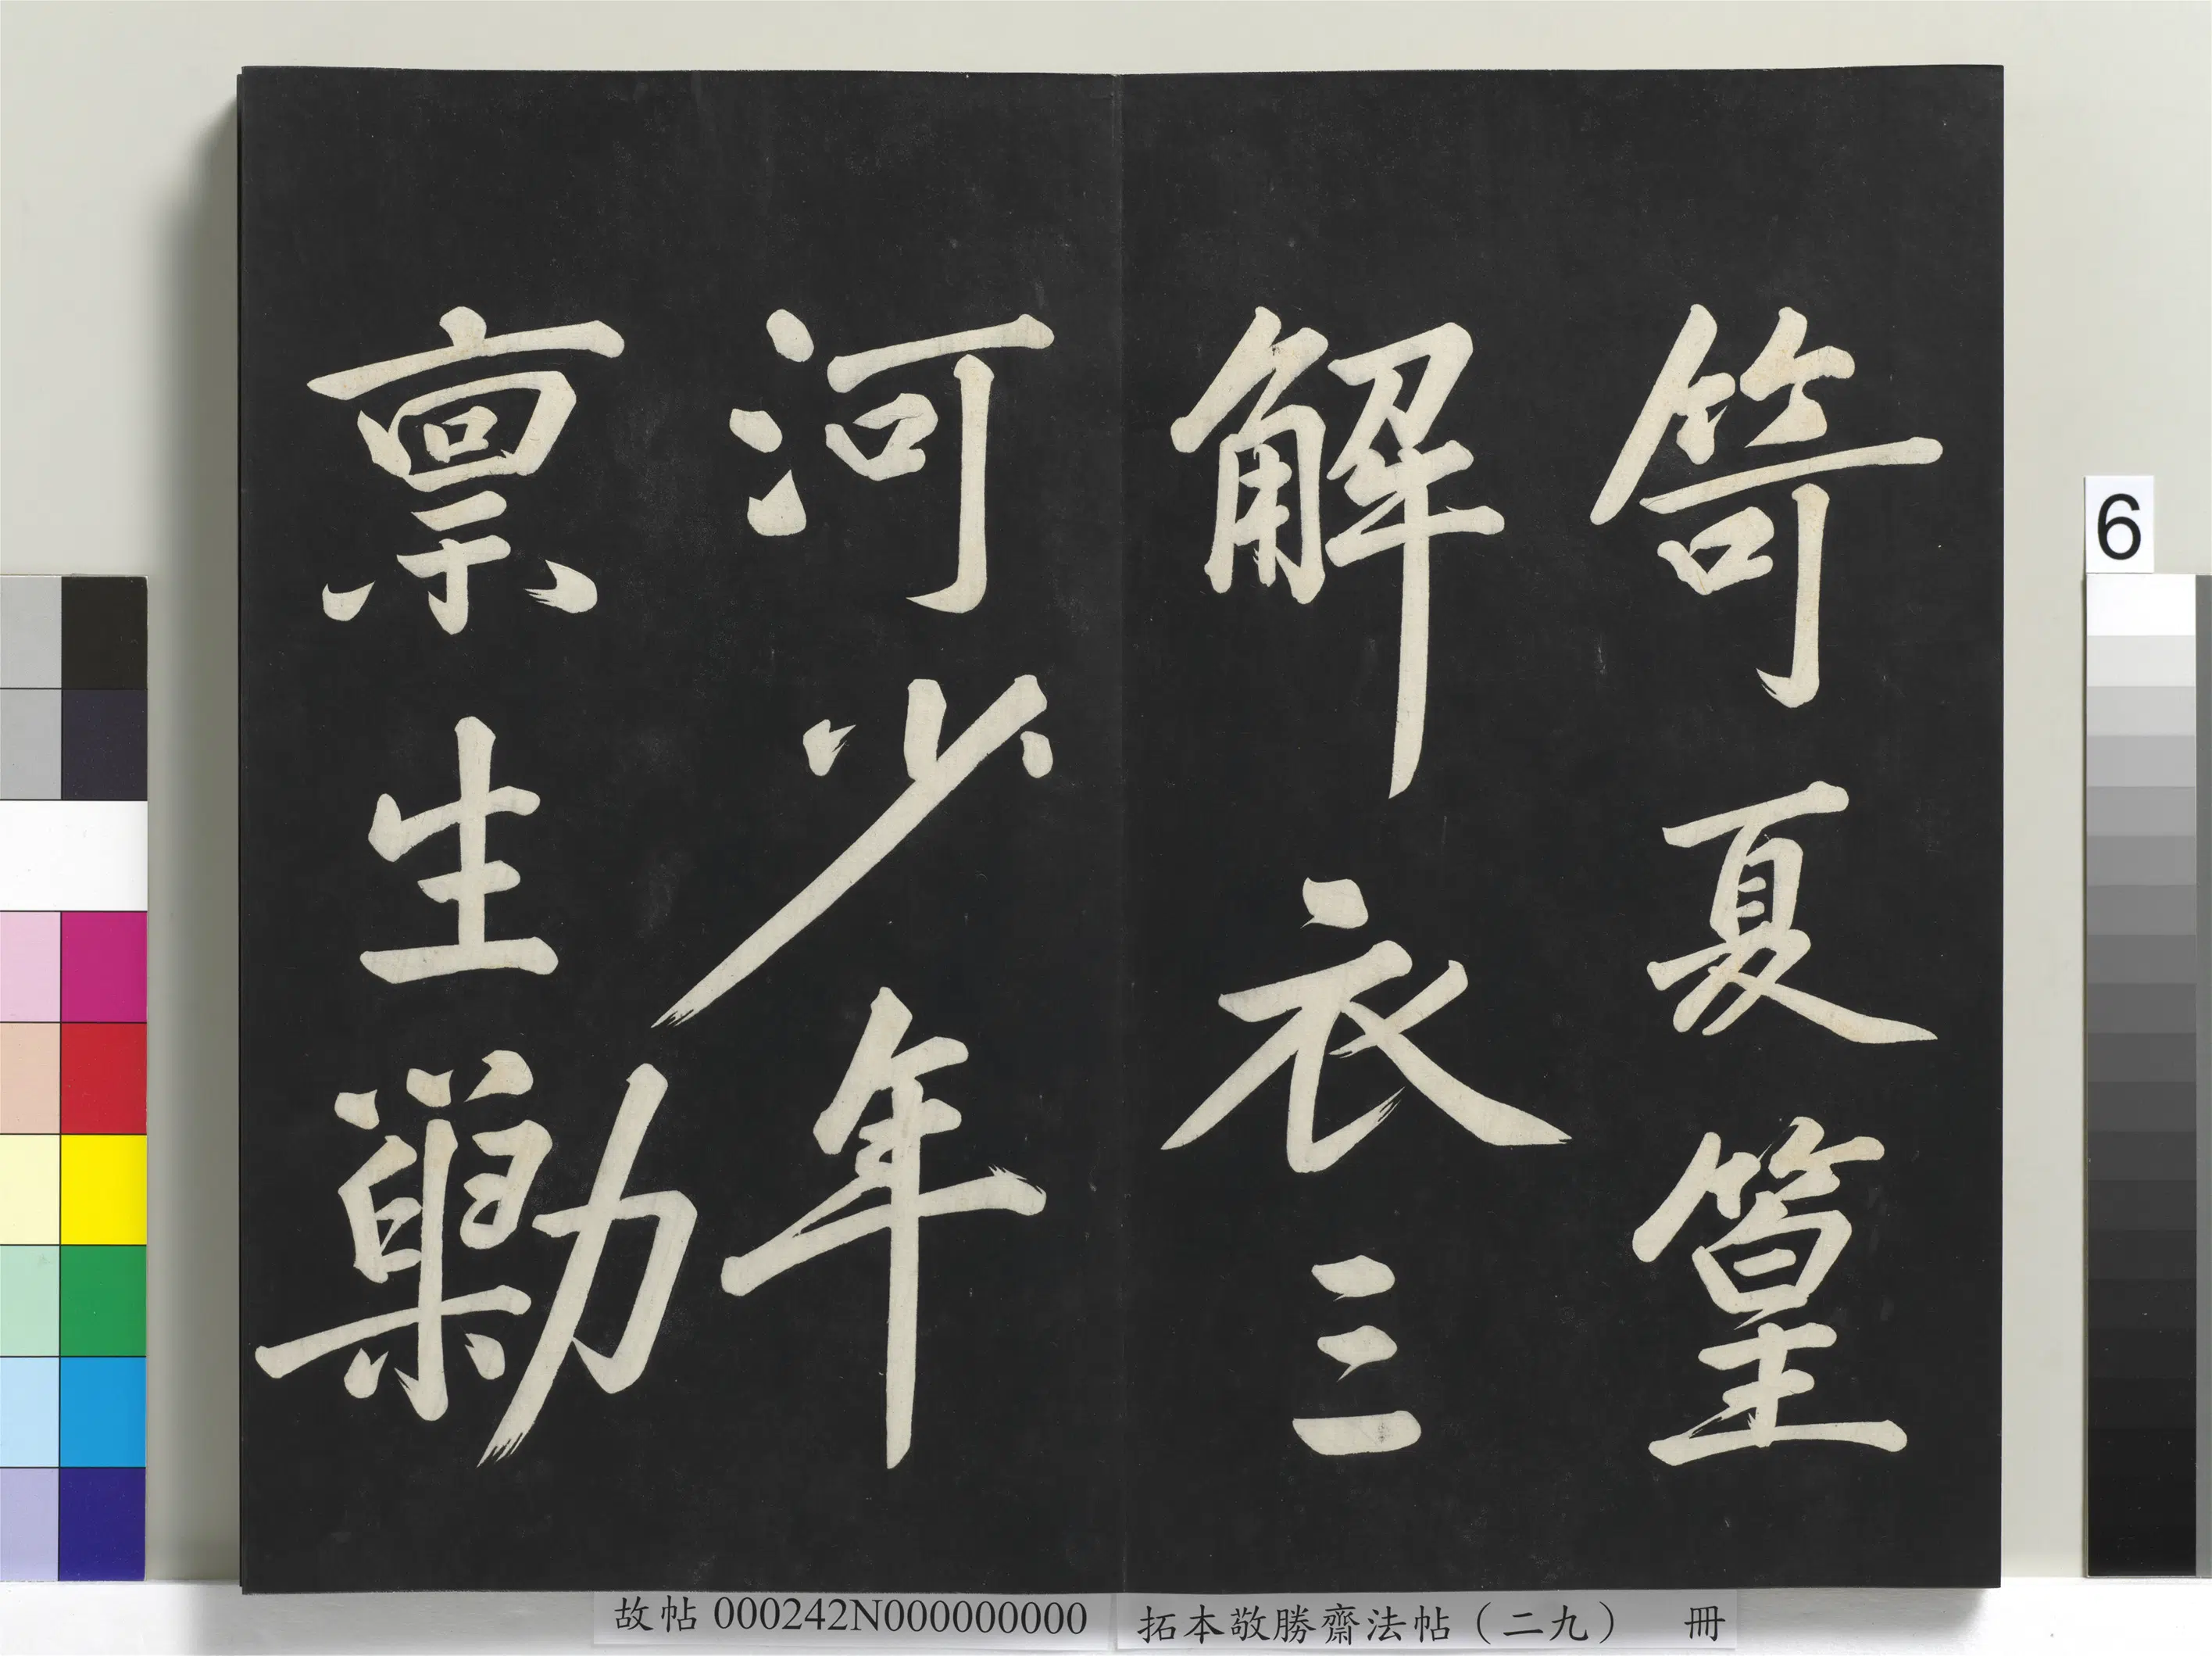 笴夏篁
解衣三
河少年
禀生勦
6
故帖 000242N000000000
拓本敬勝齋法帖（二九） 冊